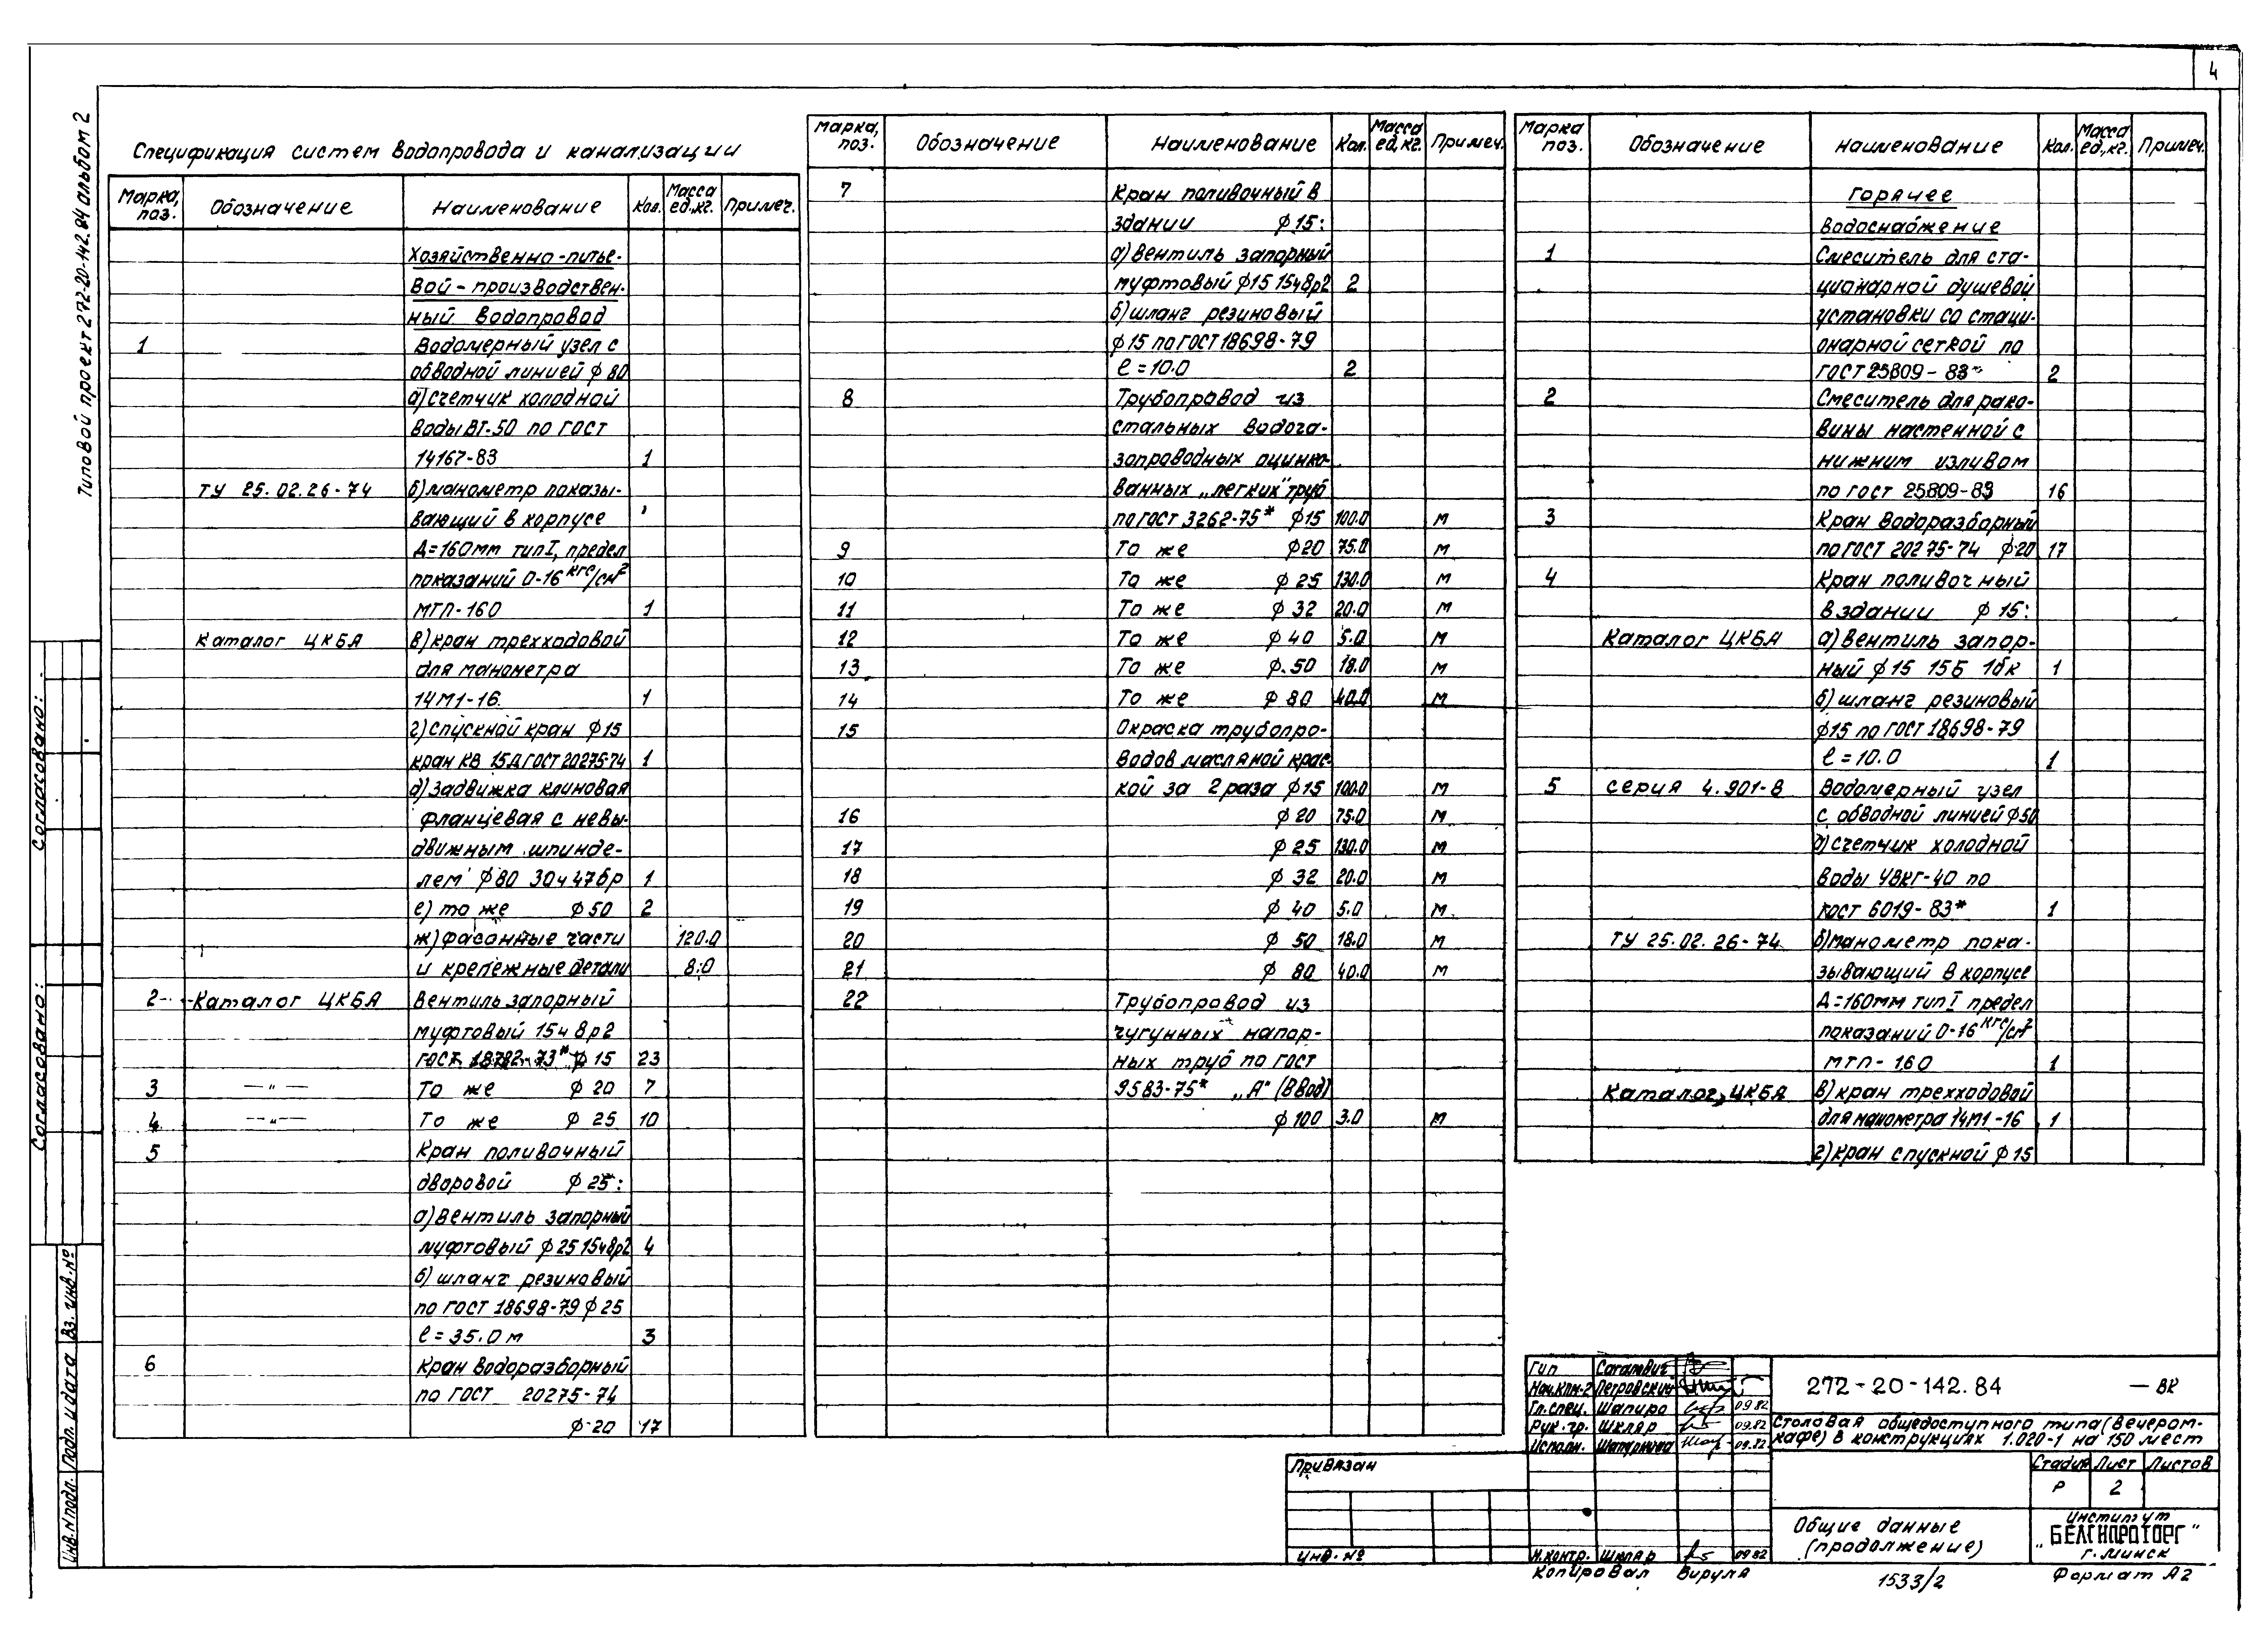 4
Типовой проект 272-20-142.84 альбом 2
Спецификация систем водопровода и канализации
Марка, поз. Обозначение Наименование Кол. Масса ед,кг. Примеч.
Хозяйственно-питье-
вой-производствен-
ный водопровод
1 Водомерный узел с
обводной линией ф 80
а) счетчик холодной
воды ВТ-50 по ГОСТ
14167-83 1
ТУ 25.02.26-74 б) манометр показы-
вающий в корпусе
Д=160мм тип I, предел
показаний 0-16 кгс/см²
МТП-160 1
Каталог ЦКБА в) кран трехходовой
для манометра
14М1-16 1
г) спускной кран ф15
кран КВ 15Д ГОСТ 20275-74 1
д) задвижка клиновая
фланцевая с невы-
движным шпинде-
лем ф80 30ч47бр 1
е) то же ф50 2
ж) фасонные части 120.0
и крепежные детали 8.0
2 Каталог ЦКБА Вентиль запорный
муфтовый 15ч8р2
ГОСТ 18782-73* ф 15 23
3 —"— То же ф 20 7
4 —"— То же ф 25 10
5 Кран поливочный
дворовой ф 25:
а) вентиль запорный
муфтовый ф25 15ч8р2 4
б) шланг резиновый
по ГОСТ 18698-79 ф25
ℓ=35.0м 3
6 Кран водоразборный
по ГОСТ 20275-74
ф20 17
Марка, поз. Обозначение Наименование Кол. Масса ед,кг. Примеч.
7 Кран поливочный в
здании ф15:
а) вентиль запорный
муфтовый ф15 15ч8р2 2
б) шланг резиновый
ф15 по ГОСТ 18698-79
ℓ=10.0 2
8 Трубопровод из
стальных водога-
зопроводных оцинко-
ванных „легких" труб
по ГОСТ 3262-75* ф15 100.0 м
9 То же ф20 75.0 м
10 То же ф 25 130.0 м
11 То же ф 32 20.0 м
12 То же ф 40 5.0 м
13 То же ф.50 18.0 м
14 То же ф 80 40.0 м
15 Окраска трубопро-
водов масляной крас-
кой за 2 раза ф15 100.0 м
16 ф 20 75.0 м
17 ф 25 130.0 м
18 ф 32 20.0 м
19 ф 40 5.0 м
20 ф 50 18.0 м
21 ф 80 40.0 м
22 Трубопровод из
чугунных напор-
ных труб по ГОСТ
9583-75* „А" (Ввод)
ф100 3.0 м
Марка поз. Обозначение Наименование Кол. Масса ед,кг. Примеч.
Горячее
водоснабжение
1 Смеситель для ста-
ционарной душевой
установки со стаци-
онарной сеткой по
ГОСТ 25809-83 2
2 Смеситель для рако-
вины настенной с
нижним изливом
по ГОСТ 25809-83 16
3 Кран водоразборный
по ГОСТ 20275-74 ф20 17
4 Кран поливочный
в здании ф15:
Каталог ЦКБА а) вентиль запор-
ный ф15 15Б 1бк 1
б) шланг резиновый
ф15 по ГОСТ 18698-79
ℓ=10.0 1
5 серия 4.901-8 Водомерный узел
с обводной линией ф50
а) счетчик холодной
воды УВКГ-40 по
ГОСТ 6019-83* 1
ТУ 25.02.26-74 б) манометр пока-
зывающий в корпусе
Д=160мм тип I предел
показаний 0-16 кгс/см²
МТП-160 1
Каталог ЦКБА в) кран трехходовой
для манометра 14М1-16 1
г) кран спускной ф15
Согласовано:
Согласовано:
Инв.№подл. Подп. и дата Вз. инв.№
Привязан
Инв.№
Гип
Нач.КПМ-2 Петровский
Гл.спец. Шапиро 09.82
Рук.гр. Шкляр 09.82
Исполн. 09.82
Н.контр. Шкляр 09.82
Копировал Вируля
272-20-142.84 — ВК
Столовая общедоступного типа (вечером-
кафе) в конструкциях 1.020-1 на 150 мест
Стадия Лист Листов
Р 2
Общие данные
(продолжение)
Институт
„БЕЛГИПРОТОРГ"
г. Минск
1533/2
Формат А2